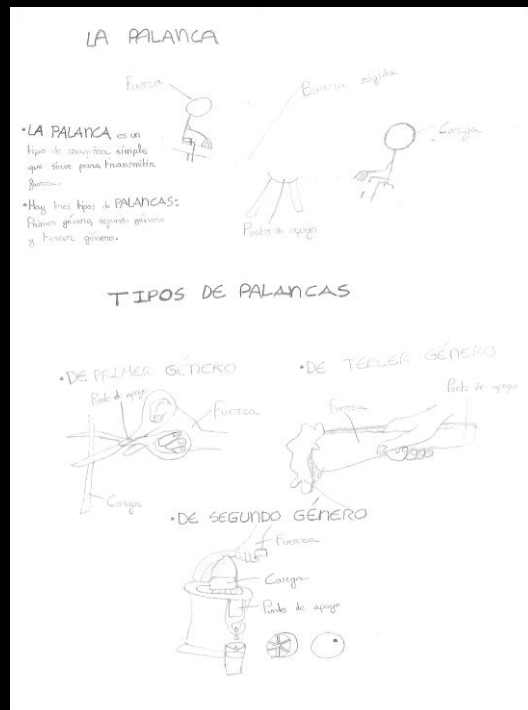 LA PALANCA
Fuerza
Barra rígida
Carga
•LA PALANCA es un
tipo de maquina simple
que sirve para transmitir
fuerza.
•Hay tres tipos de PALANCAS:
Primer género, segundo género
y tercer género.
Punto de apoyo
TIPOS DE PALANCAS
•DE PRIMER GÉNERO
Punto de apoyo
Fuerza
Carga
•DE TERCER GÉNERO
Punto de apoyo
Fuerza
•DE SEGUNDO GÉNERO
Fuerza
Carga
Punto de apoyo